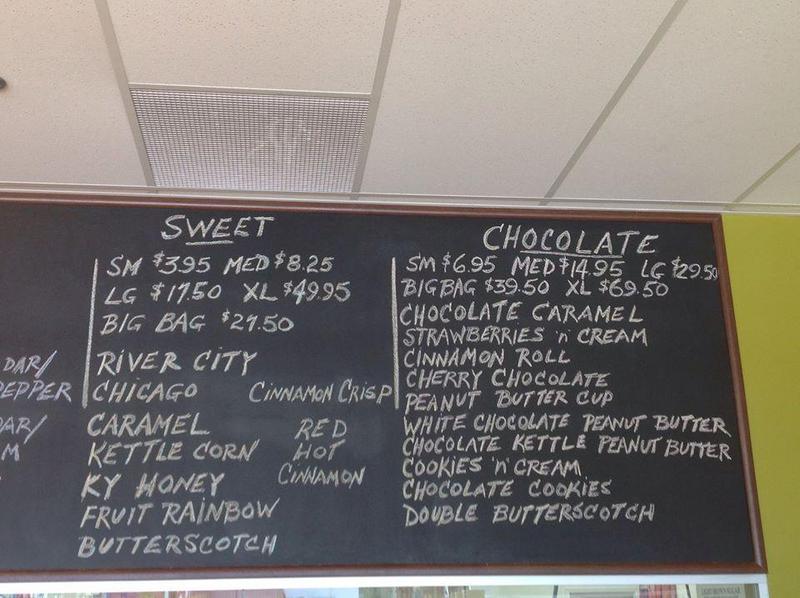 DAR/
PEPPER
DAR/
M
SWEET
SM $3.95 MED $8.25
LG $17.50 XL $49.95
BIG BAG $27.50
RIVER CITY
CHICAGO
CARAMEL
KETTLE CORN
KY HONEY
FRUIT RAINBOW
BUTTERSCOTCH
CINNAMON CRISP
RED
HOT
CINNAMON
CHOCOLATE
SM $6.95 MED $14.95 LG $29.50
BIG BAG $39.50 XL $69.50
CHOCOLATE CARAMEL
STRAWBERRIES 'n' CREAM
CINNAMON ROLL
CHERRY CHOCOLATE
PEANUT BUTTER CUP
WHITE CHOCOLATE PEANUT BUTTER
CHOCOLATE KETTLE PEANUT BUTTER
COOKIES 'n' CREAM
CHOCOLATE COOKIES
DOUBLE BUTTERSCOTCH